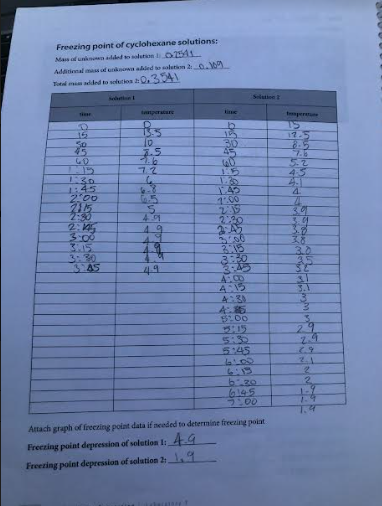 Freezing point of cyclohexane solutions:
Mass of unknown added to solution 1:
Additional mass of unknown added to solution 2:
Total mass added to solution 2: 0.3541
Solution 1 Solution 2
time temperature time temperature
0 0 15
15 13.5 15 12.5
10 30 8.5
45 8.5 45 7.6
60 7.6 60 5.2
1:15 7.2 4.5
1:30 6 4.1
1:45 6.8 1:45 4
2:00 6.5 2:00 4
2:15 5 2:15 3.9
2:30 4.9 2:30 3.9
4.9 2:45 3.8
3:00 4.9 3:00 3.8
3:15 4.9 3:15
3:30 4.9 3:30 3.5
3:45 4.9 3:45
4:00 3.1
4:15 3.1
4:30 3
4:45 3
5:00 3
5:15 2.9
5:30 2.9
5:45
6:00 2.1
6:15 2
6:30 2
6:45 1.9
7:00 1.9
1.9
Attach graph of freezing point data if needed to determine freezing point
Freezing point depression of solution 1: 4.9
Freezing point depression of solution 2: 1.9